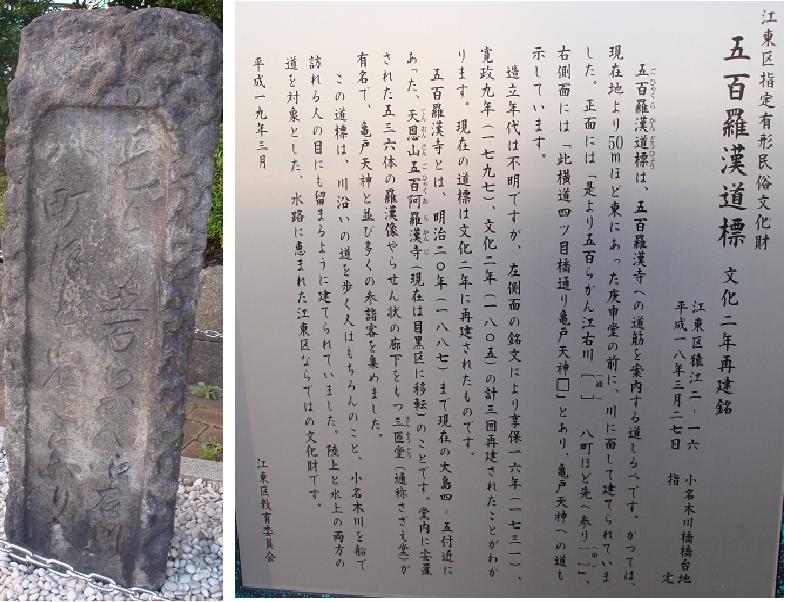 江東区指定有形民俗文化財
五百羅漢道標 文化二年再建銘
江東区猿江二-一六 小名木川橋橋台地
平成一八年三月二七日 指定
五百羅漢道標は、五百羅漢寺への道筋を案内する道しるべです。かつては、
現在地より50mほど東にあった庚申堂の前に、川に面して建てられていま
した。正面には「是より五百らかん江右川［ ］八町ほど先へ参り［ ］」、
右側面には「此横道四ツ目橋通り亀戸天神□」とあり、亀戸天神への道も
示しています。
造立年代は不明ですが、左側面の銘文により享保一六年(一七三一)、
寛政九年(一七九七)、文化二年(一八〇五)の計三回再建されたことがわか
ります。現在の道標は文化二年に再建されたものです。
五百羅漢寺とは、明治二〇年(一八八七)まで現在の大島四-五付近に
あった、天恩山五百阿羅漢寺(現在は目黒区に移転)のことです。堂内に安置
された五三六体の羅漢像やらせん状の廊下をもつ三匝堂(通称さざえ堂)が
有名で、亀戸天神と並び多くの参詣客を集めました。
この道標は、川沿いの道を歩く人はもちろんのこと、小名木川を船で
訪れる人の目にも留まるように建てられていました。陸上と水上の両方の
道を対象とした、水路に恵まれた江東区ならではの文化財です。
平成一九年三月
江東区教育委員会